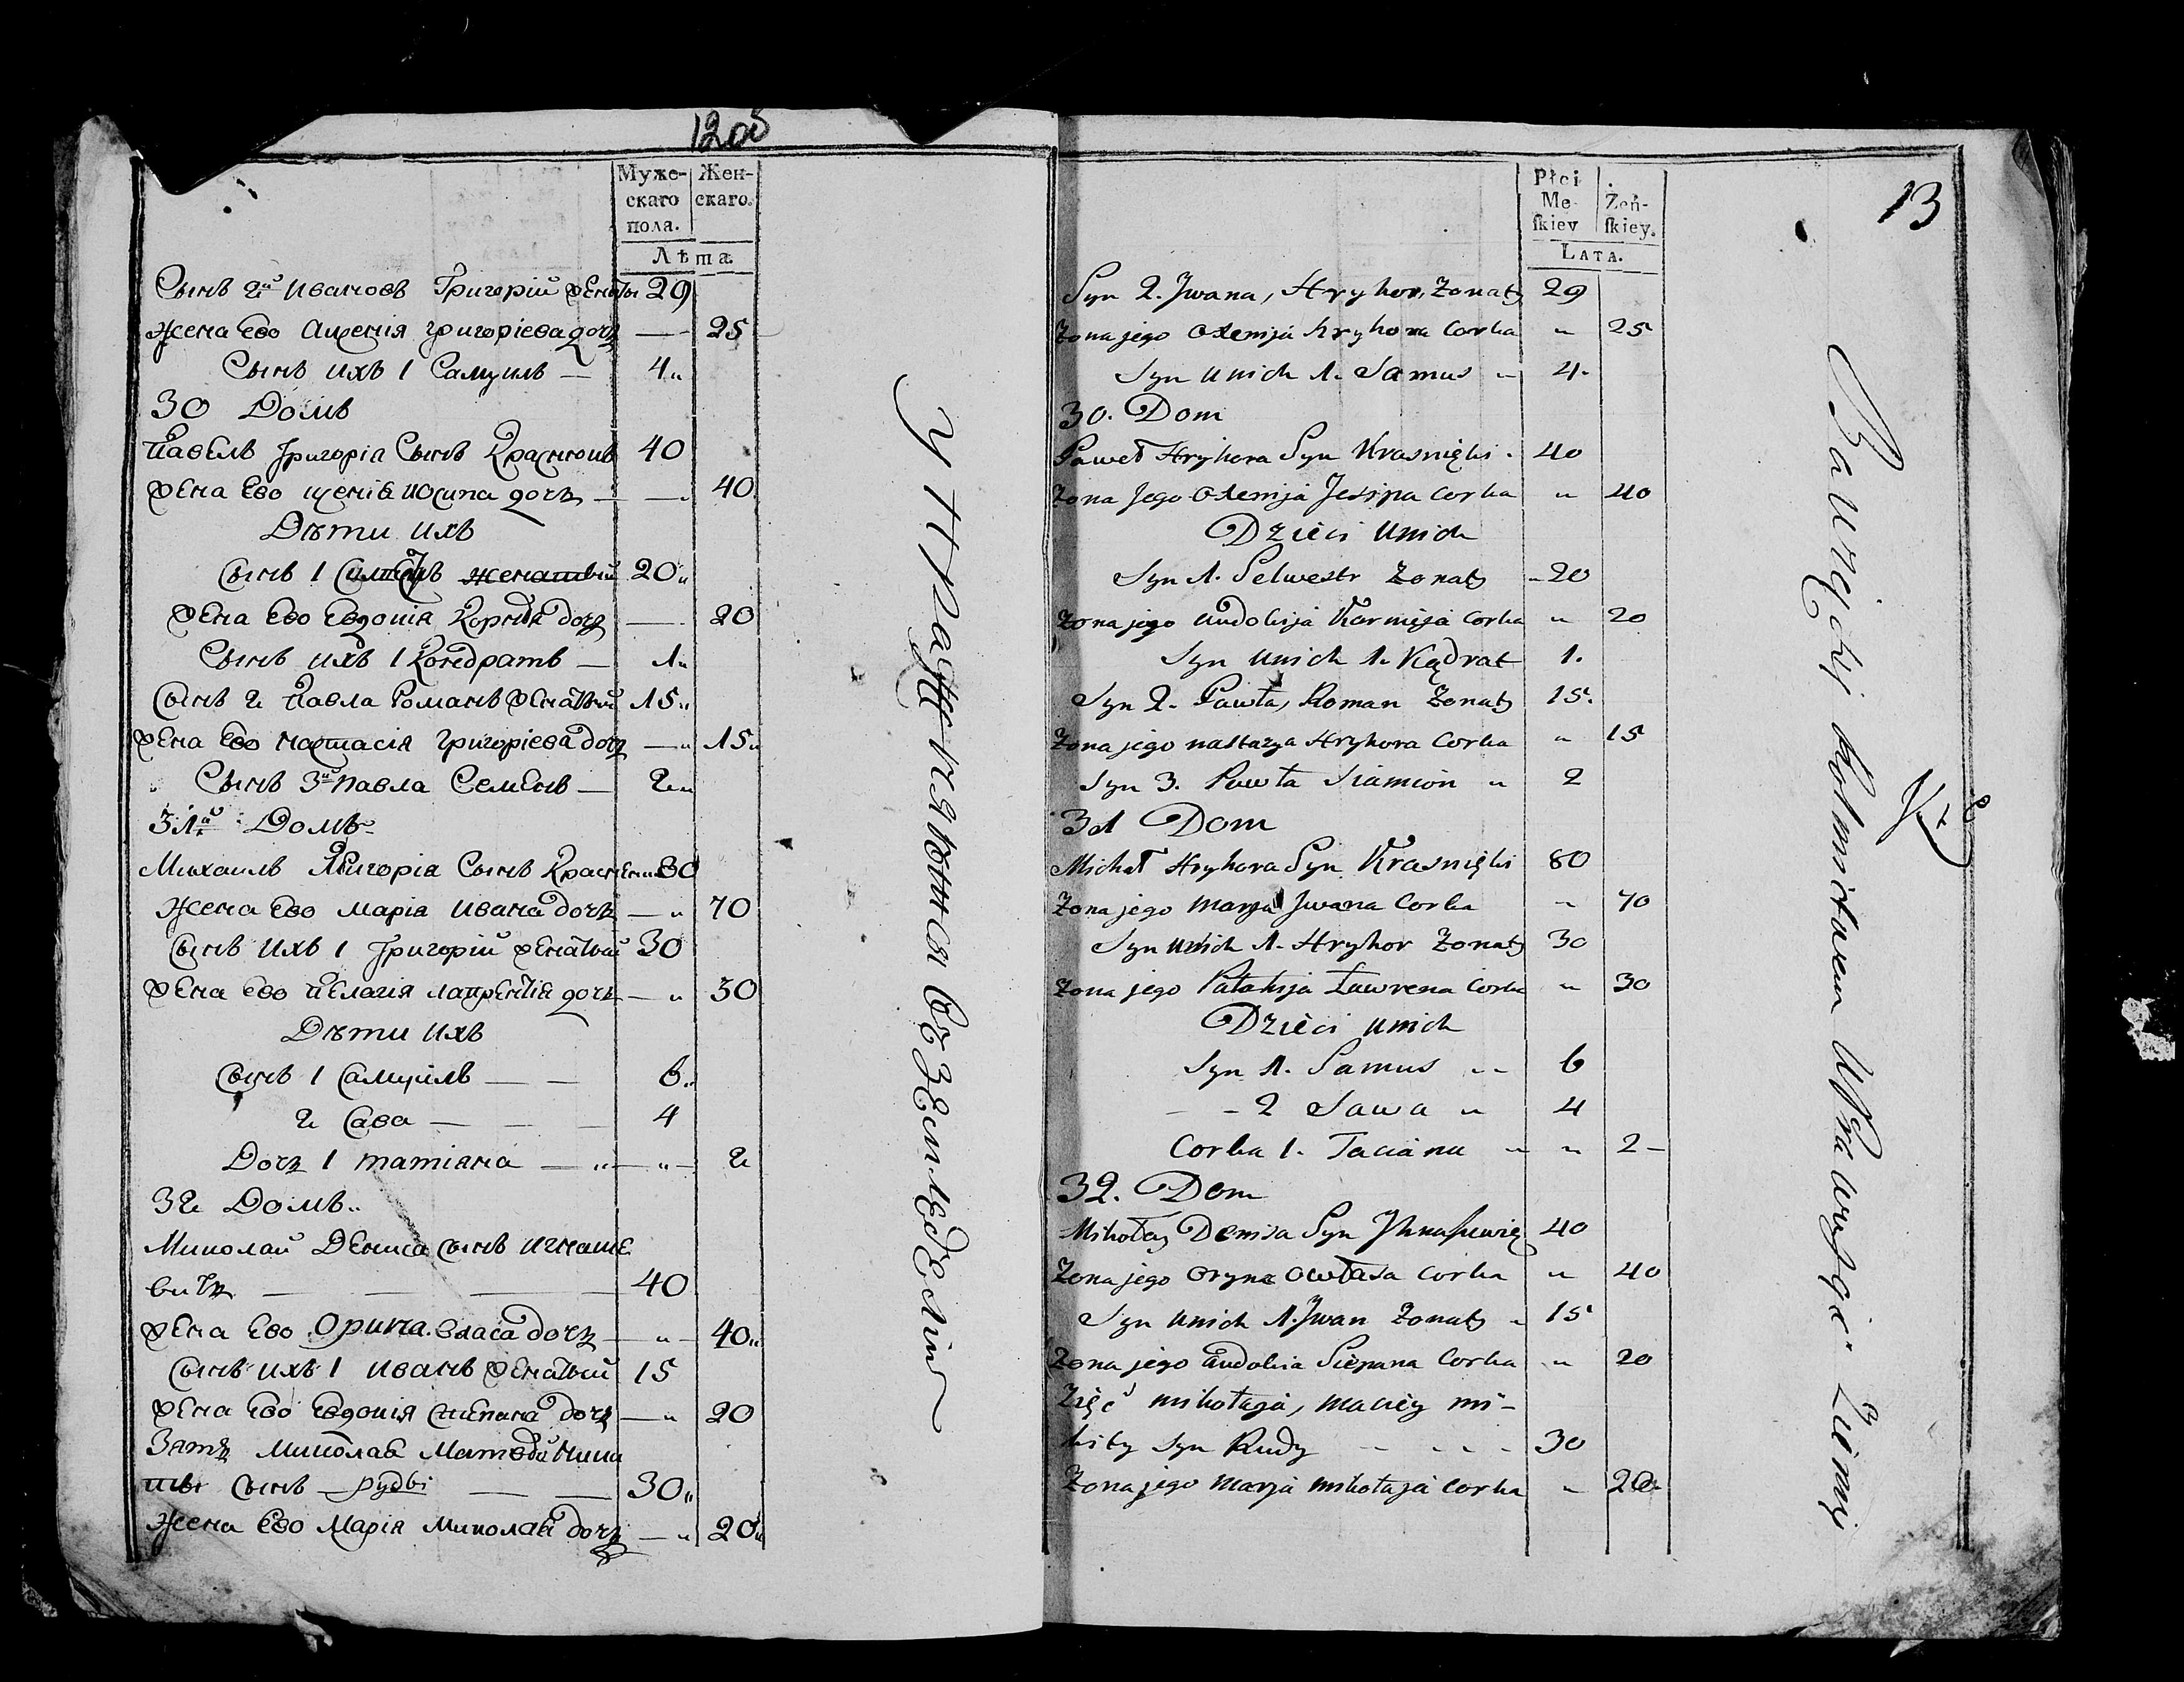 12 об
Муже-
скаго
пола.
Жен-
скаго.
Лѣта.
Сынъ 2й Ивановъ Григорій женатъ 29
жена Ево Аксенія григоріева дочь — 25
Сынъ ихъ 1 Самуилъ — 4
30 Домъ
Павелъ Григорія Сынъ 40
жена Ево Осипа дочь — 40
Дѣти ихъ
Сынъ 1 женатый 20
жена Ево Евдокія Корнѣя дочь — 20
Сынъ ихъ 1 Кондратъ — 1
Сынъ 2 Павла Романъ женатый 15
жена Ево настасія григоріева дочь — 15
Сынъ 3й павла Семенъ — 2
31й Домъ
Михаилъ Григорія Сынъ 80
жена Ево Марія Ивана дочь — 70
Сынъ ихъ 1 Григорій женатый 30
жена Ево Пелагія лаврентія дочь — 30
Дѣти ихъ
Сынъ 1 Самуилъ — — 6
2 Сава — — — 4
Дочь 1 татіяна — 2
32 Домъ
Николай Дениса сынъ Игнаше
вичъ — — — 40
жена Ево Орина власа дочь — 40
Сынъ ихъ 1 иванъ женатый 15
жена Ево Евдокія степана дочь — 20
Зять Николая Матвѣй Ники
ты Сынъ рудый — — 30
жена Ево Марія Николая дочь — 20
упражняются въ земледелию
13
Płci
Mę-
skiey
Żeń-
skiey.
LATA.
Syn 2. Jwana, Hryhor, Zonaty 29
Zona jego Oxemja hryhora Corka „ 25
Syn unich 1. Samus „ 4.
30. Dom
Paweł Hryhora Syn Krasnięki 40
Zona Jego Oxemja Jesipa corka „ 40
Dzieci unich
Syn 1. Selwestr Zonaty 20
Zona jego audokija Karnieja corka „ 20
Syn unich 1. Kądrat 1.
Syn 2. Pawła, Roman Zonaty 15.
Zona jego nastazya Hryhora Corka „ 15
Syn 3. Pawła Siamion „ 2
31 Dom
Michał Hryhora Syn Krasnięki 80
Zona jego marya Jwana Corka „ 70
Syn unich 1. Hryhor Zonaty 30
Zona jego Pałahija Ławrena Corka „ 30
Dzieci unich
Syn 1. Samus „ 6
- - 2 Sawa „ 4
Corka 1. Taciana „ „ 2 -
32. Dom
Mikołay Denisa Syn 40
Zona jego Oryna Owłasa corka „ 40
Syn unich 1. Jwan Zonaty „ 15
Zona jego audokia Siepana Corka „ 20
Zięć mikołaja, maciey mi-
kity Syn Rudy - - - 30
Zona jego marja mikołaja corka „ 20
Bawięcy